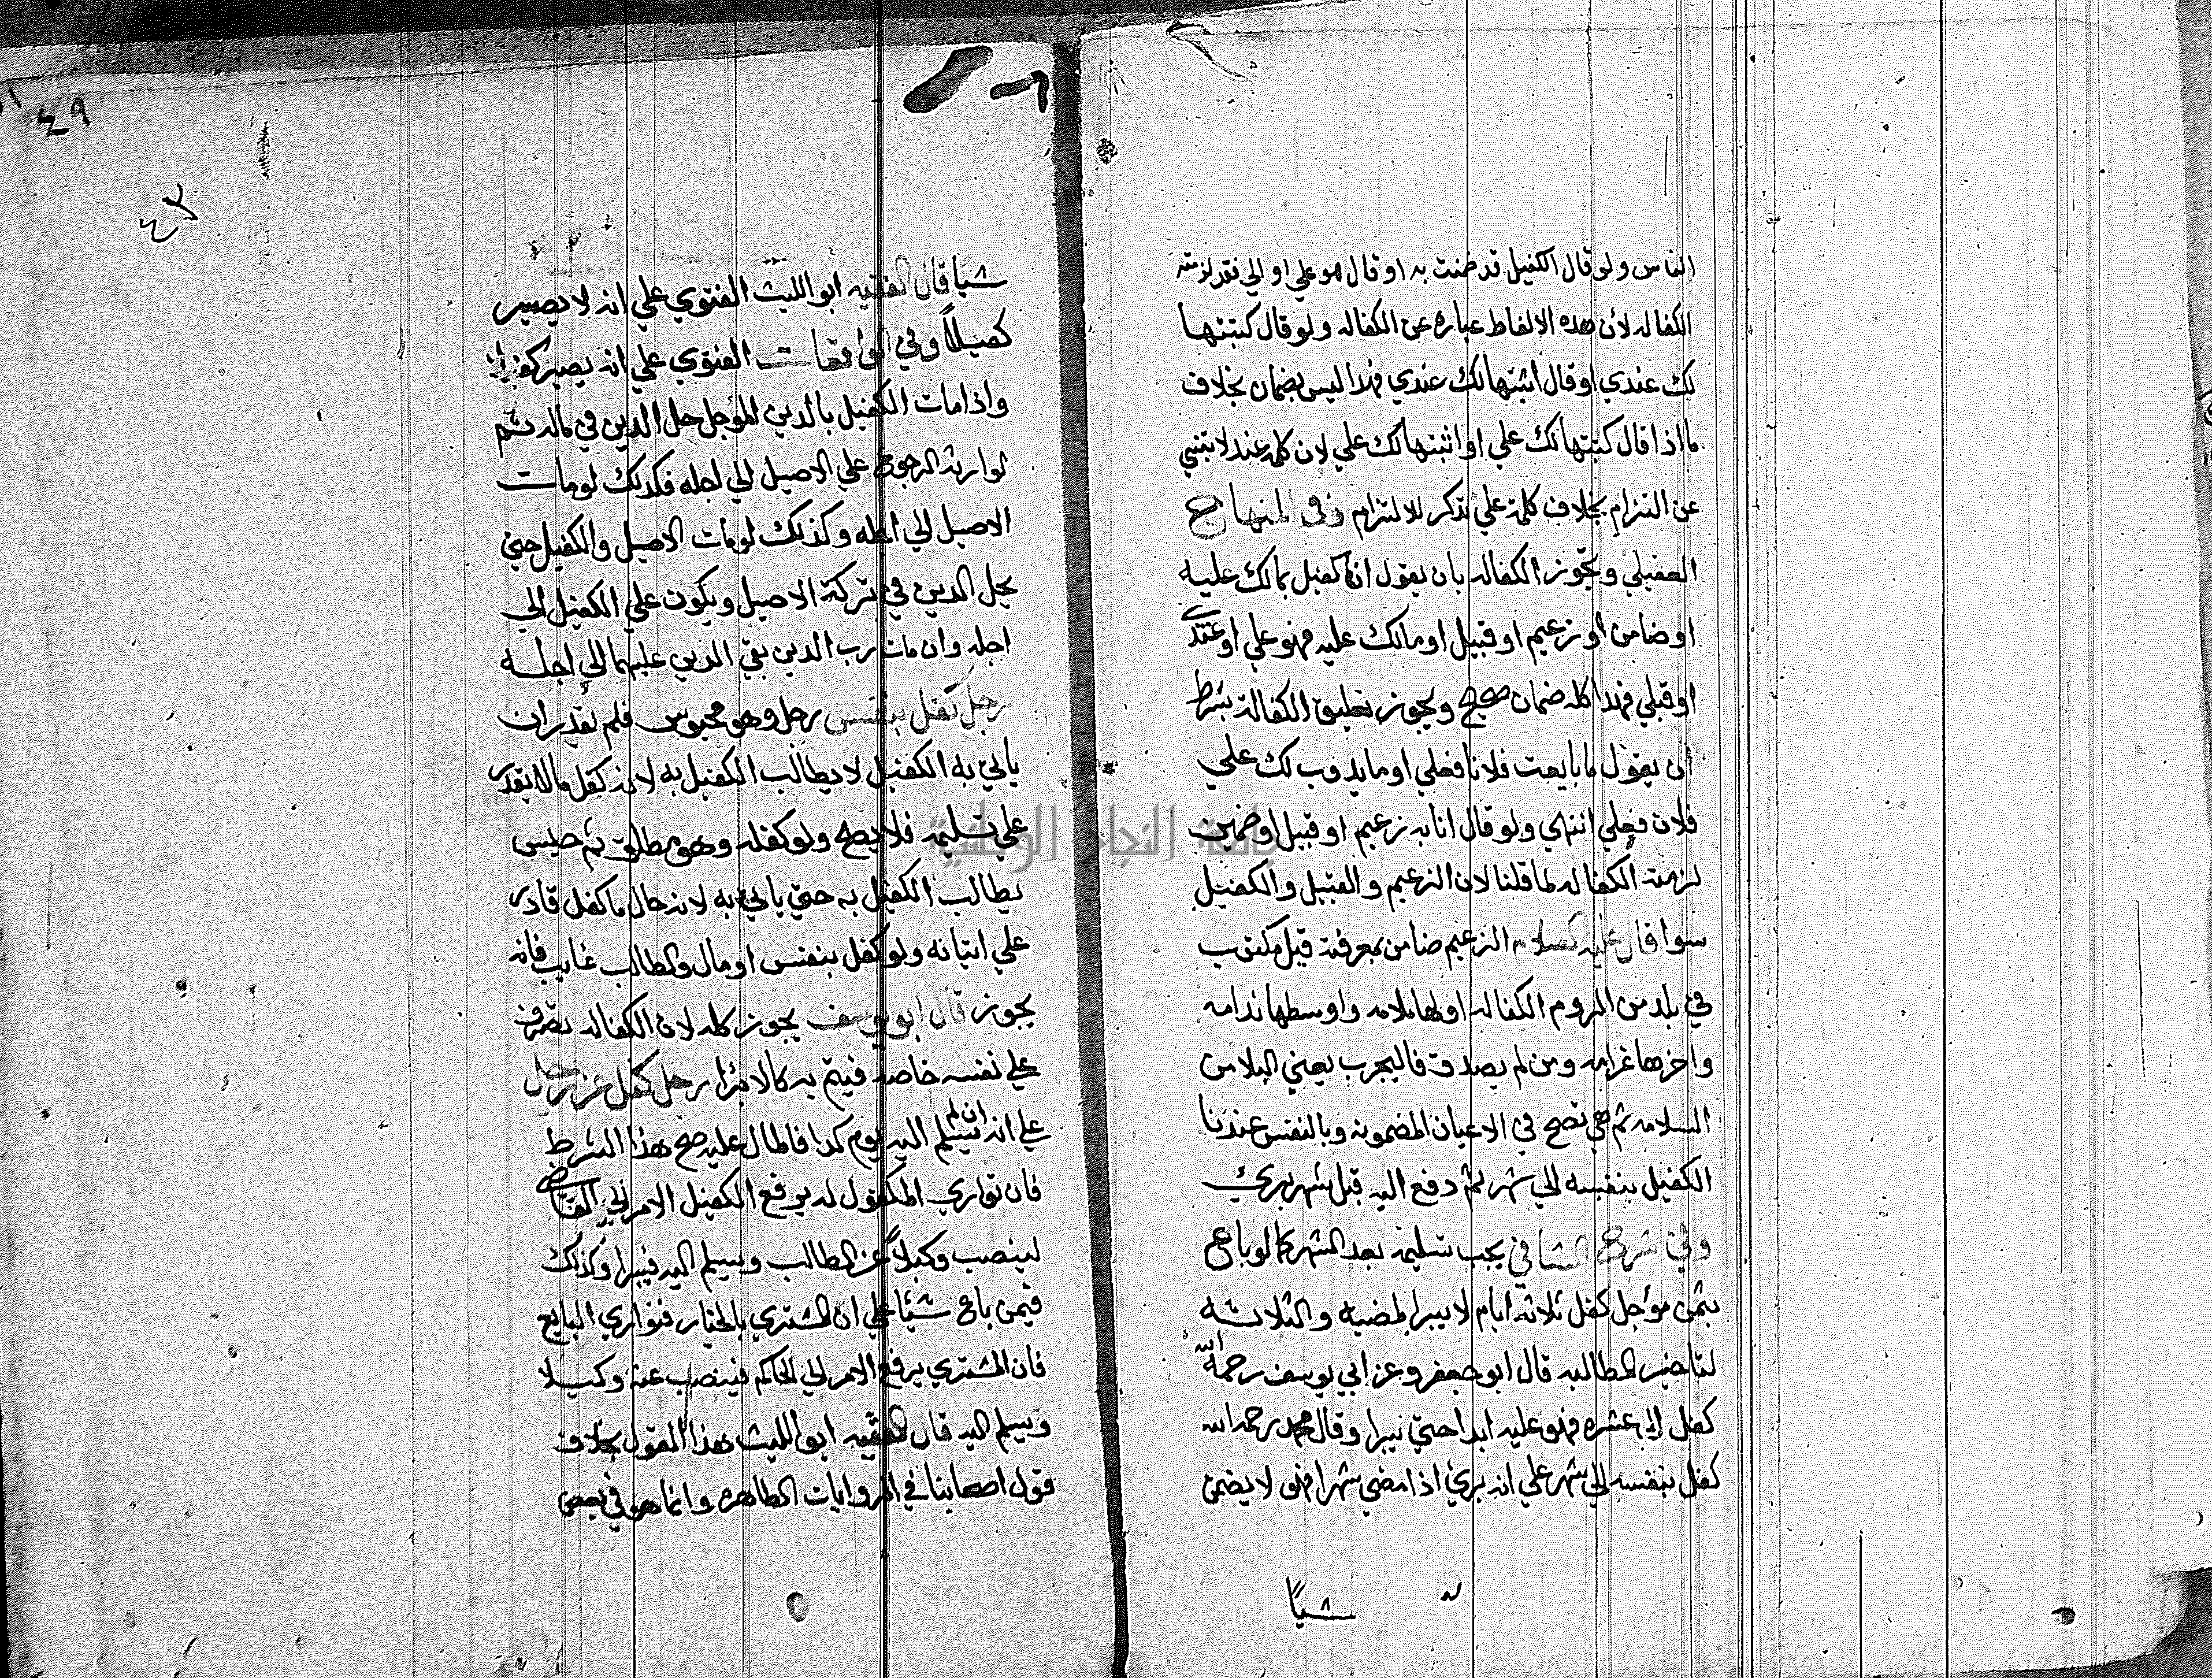 الناس ولو قال الكفيل قد ضمنت به او قال هو علي او الي فقد لزمته
الكفاله لأن هذه الالفاظ عباره عن الكفاله ولو قال كتبتها
لك عندي او قال اثبتها لك عندي فهذا ليس بضمان بخلاف
ما اذا قال كتبتها لك علي او اثبتها لك علي لان كلمة عند لا تبني
عن التزام بخلاف كلمة علي تذكر للالتزام وفي المنهاج
العقيلي وتجوز الكفاله بان يقول انا كفيل بمالك عليه
او ضامن او زعيم او قبيل او مالك عليه فهو علي او عندي
او قبلي فهذا كله ضمان صحيح ويجوز تعليق الكفالة بشرط
أن يقول ما بايعت فلانا فعلي او ما يذوب لك علي
فلان فعلي انتهي ولو قال انا به زعيم او قبيل او ضمين
لزمته الكفاله لما قلنا لان الزعيم والقبيل والكفيل
سوا قال عليه السلام الزعيم ضامن بمعرفته قيل مكتوب
في بلد من الروم الكفاله اولها ملامه واوسطها ندامه
واخرها غرامه ومن لم يصدق فاليجرب يعني البلا من
السلامه ثم هي تصح في الاعيان المضمونه وبالنفس عندنا
الكفيل بنفسه الي شهر ثم دفع اليه قبل شهر بري
وفي شرح الشافي يجب تسليمه بعد الشهر كما لو باع
بثمن مؤجل كفل ثلاثة ايام لا يبرا لمضيه والثلاثه
لتاخير المطالبه قال ابو جعفر وعن ابي يوسف رحمه الله
كفل الي عشره فهو عليه ابدا حتي يبرا وقال محمد رحمه الله
كفل بنفسه الي شهر علي انه بريء اذا مضي شهرا فهو لا يضمن
شيأ
٤٩
٤٢
شيأ قال الفقيه ابو الليث الفتوي علي انه لا يصير
كفيلاً وفي الواقعات الفتوي علي انه يصير كفيلا
واذا مات الكفيل بالدين المؤجل حل الدين في ماله ثم
لوارثه الرجوع علي الاصيل الي اجله فكذلك لو مات
الاصيل الي اجله وكذلك لو مات الاصيل والكفيل حيي
يحل الدين في تركة الاصيل ويكون علي الكفيل الي
اجله وان مات رب الدين بقي الدين عليهما الي اجله
رجل كفل بنفس رجل وهو محبوس فلم يقدر ان
ياتي به الكفيل لا يطالب الكفيل به لانه كفل ما لا يقدر
علي تسليمه فلا يصح ولو كفله وهو مطلق ثم حبس
يطالب الكفيل به حتي ياتي به لانه حال ما كفل قادر
علي اتيانه ولو كفل بنفس او مال والطالب غايب فانه
يجوز قال ابو يوسف يجوز كله لان الكفاله تصرف
علي نفسه خاصه فيتم به كالابرا رجل كفل عن رجل
علي انه ان لم يسلم اليه يوم كذا فالمال عليه صح هذا الشرط
فان تواري المكفول له يرفع الكفيل الامر الي القاضي
لينصب وكيلاً عن الطالب ويسلم اليه فيبرا وكذلك
فيمن باع شيئا علي ان المشتري بالخيار فتواري البايع
فان المشتري يرفع الامر الي الحاكم فينصب عنه وكيلا
ويسلم اليه قال الفقيه ابو الليث هذا القول بخلاف
قول اصحابنا في الروايات الظاهره وانما هو في بعض